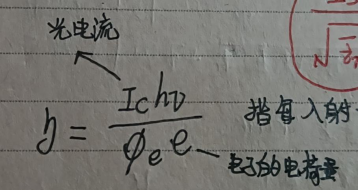 光电流
η = I_c hν / φ_e e
指每入射
电子的电荷量